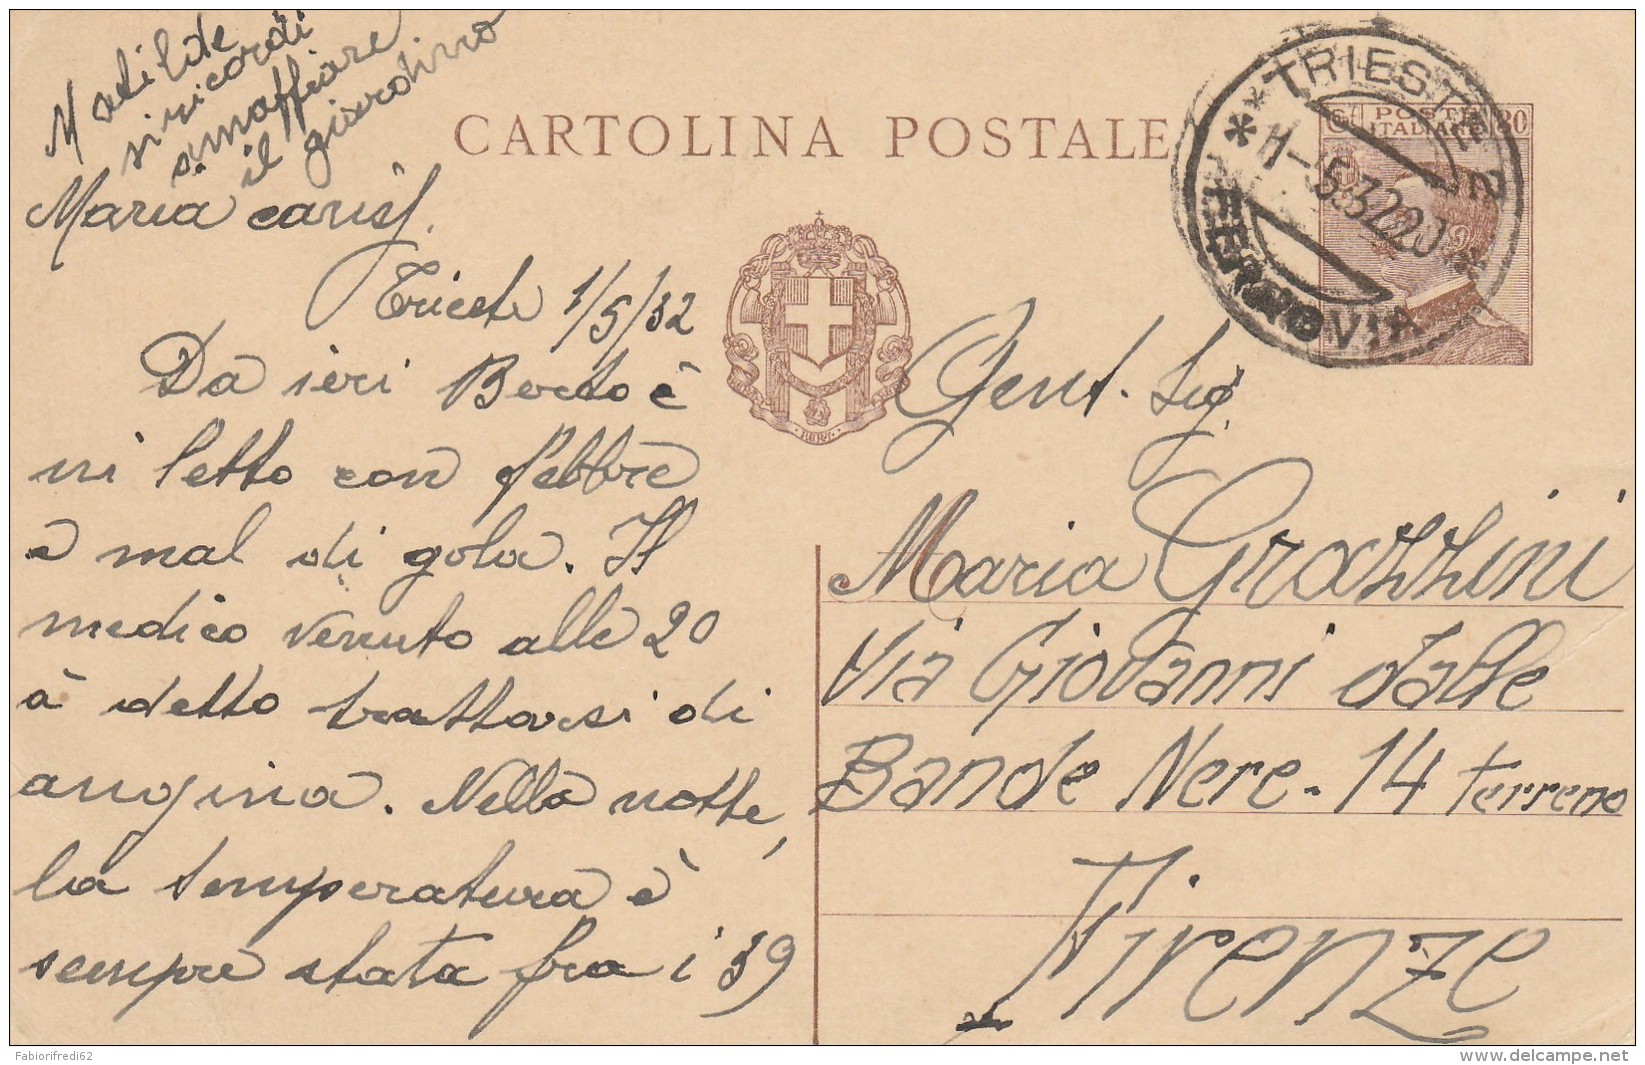 Matilde
si ricordi
d'innaffiare
il giardino
CARTOLINA POSTALE
TRIESTE 2
FERROVIA
POSTE
ITALIANE
30
Maria cariss.
Trieste 1/5/32
Da ieri Berto è
in letto con febbre
e mal di gola. Il
medico venuto alle 20
à detto trattarsi di
angina. Nella notte,
la temperatura è
sempre stata fra i 39
FERT
Gent. Sig.
Maria Grazzini
Via Giovanni dalle
Bande Nere - 14 terreno
Firenze
Fabiorifredi62
www.delcampe.net